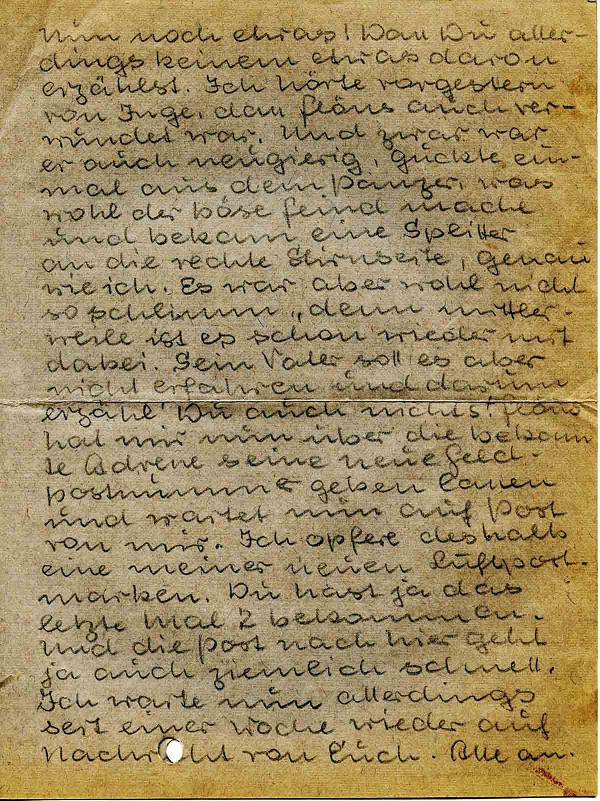 Nun noch etwas! Daß Du aller-
dings keinem etwas davon
erzählst. Ich hörte vorgestern
von Inge, daß Häns auch ver-
wundet war. Und zwar war
er auch neugierig, guckte ein-
mal aus dem Panzer, was
wohl der böse Feind mache
und bekam eine Splitter
an die rechte Stirnseite, genau
wie ich. Es war aber wohl nicht
so schlimm, denn mittler-
weile ist es schon wieder mit
dabei. Sein Vater soll es aber
nicht erfahren und darum
erzähl' Du auch nichts! Häns
hat mir nun über die bekann
te Adresse seine neue Feld-
postnummer geben lassen
und wartet nun auf Post
von mir. Ich opfere deshalb
eine meiner neuen Luftpost-
marken. Du hast ja das
letzte Mal 2 bekommen.
Und die Post nach hier geht
ja auch ziemlich schnell.
Ich warte nun allerdings
seit einer Woche wieder auf
Nachricht von Euch. Alle an-